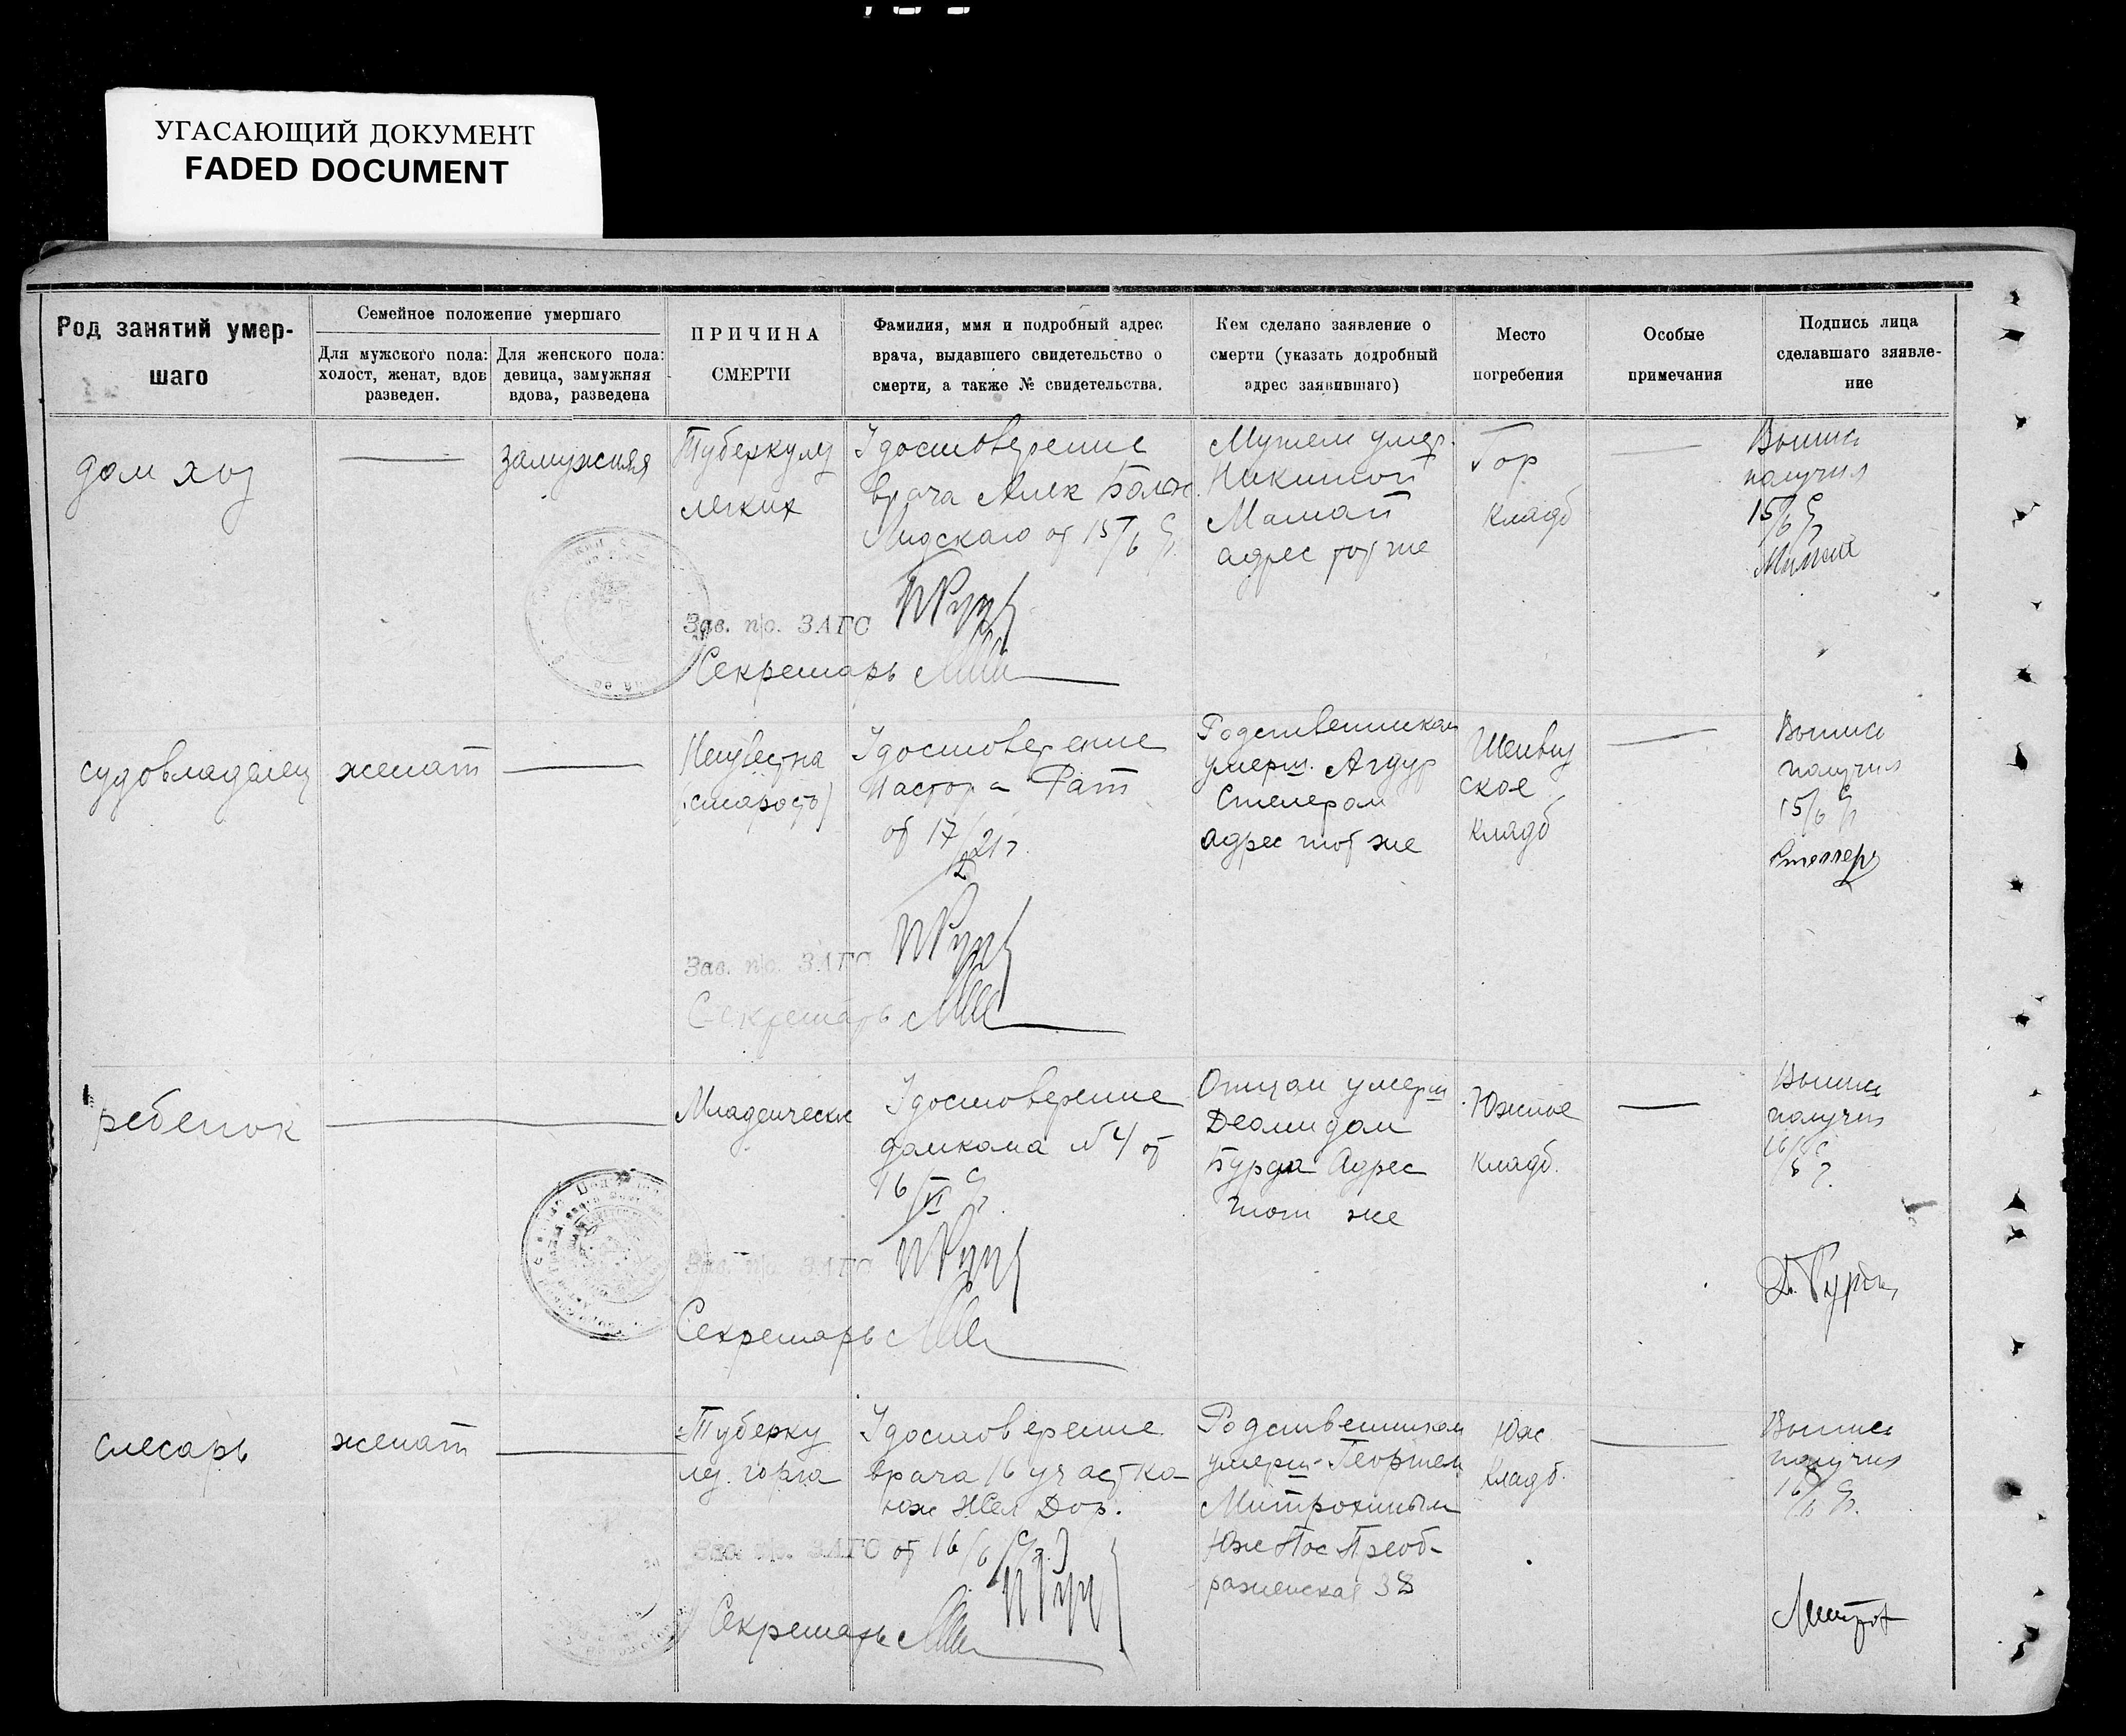 УГАСАЮЩИЙ ДОКУМЕНТ
FADED DOCUMENT
Род занятий умер-
шаго
Семейное положение умершаго
Для мужского пола:
холост, женат, вдов
разведен.
Для женского пола:
девица, замужняя
вдова, разведена
ПРИЧИНА
СМЕРТИ
Фамилия, имя и подробный адрес
врача, выдавшего свидетельство о
смерти, а также № свидетельства.
Кем сделано заявление о
смерти (указать додробный
адрес заявившаго)
Место
погребения
Особые
примечания
Подпись лица
сделавшаго зяявле-
ние
дом хоз
замужняя
Туберкулз
легких
Удостоверение
врача Алек
от 15/6
Мужем умер.
Никитой
адрес тот же
Гор
кладб
Выпись
получил
15/6
Зав. п/о. ЗАГС
Секретарь
судовладелец
женат
Неизвестна
(старость)
Удостоверение
Пастора
от 17/ 21 г
Родственником
умерш.
адрес тот же
кладб
Выпись
получил
15/6
Зав. п/о. ЗАГС
Секретарь
ребенок
Младенческ
Удостоверение
домкома № 4 от
16/VI
Отцом умерш
Деомидом
Бурда Адрес
тот же
Южное
кладб.
Выпись
получил
16/6
Зав. п/о. ЗАГС
Секретарь
слесарь
женат
Туберку
лез. горла
Удостоверение
врача 16 участка
юж Жел Дор.
от 16/6
Родственником
умерш Георгием
Митрохиным
Юж Пос Преоб-
раженская 38
Юж
кладб.
Выпись
получил
16/6
Зав. п/о. ЗАГС
Секретарь